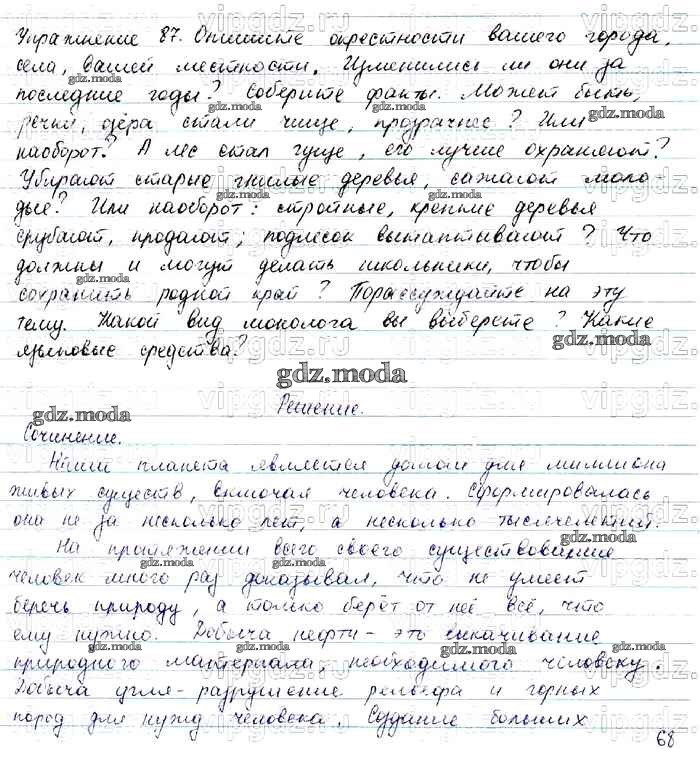 Упражнение 87. Опишите окрестности вашего города,
села, вашей местности. Изменились ли они за
последние годы? Соберите факты. Может быть,
речки, озёра стали чище, прозрачнее? Или
наоборот? А лес стал гуще, его лучше охраняют?
Убирают старые гнилые деревья, сажают моло-
дые? Или наоборот: стройные, крепкие деревья
срубают, продают; подлесок вытаптывают? Что
должны и могут делать школьники, чтобы
сохранить родной край? Порассуждайте на эту
тему. Какой вид монолога вы выберете? Какие
языковые средства?
gdz.moda
Решение.
Сочинение.
Наша планета является домом для миллиона
живых существ, включая человека. Сформировалась
она не за несколько лет, а несколько тысячелетий.
На протяжении всего своего существования
человек много раз доказывал, что не умеет
беречь природу, а только берёт от неё всё, что
ему нужно. Добыча нефти - это выкачивание
природного материала, необходимого человеку.
Добыча угля - разрушение рельефа и горных
пород для нужд человека. Создание больших
68